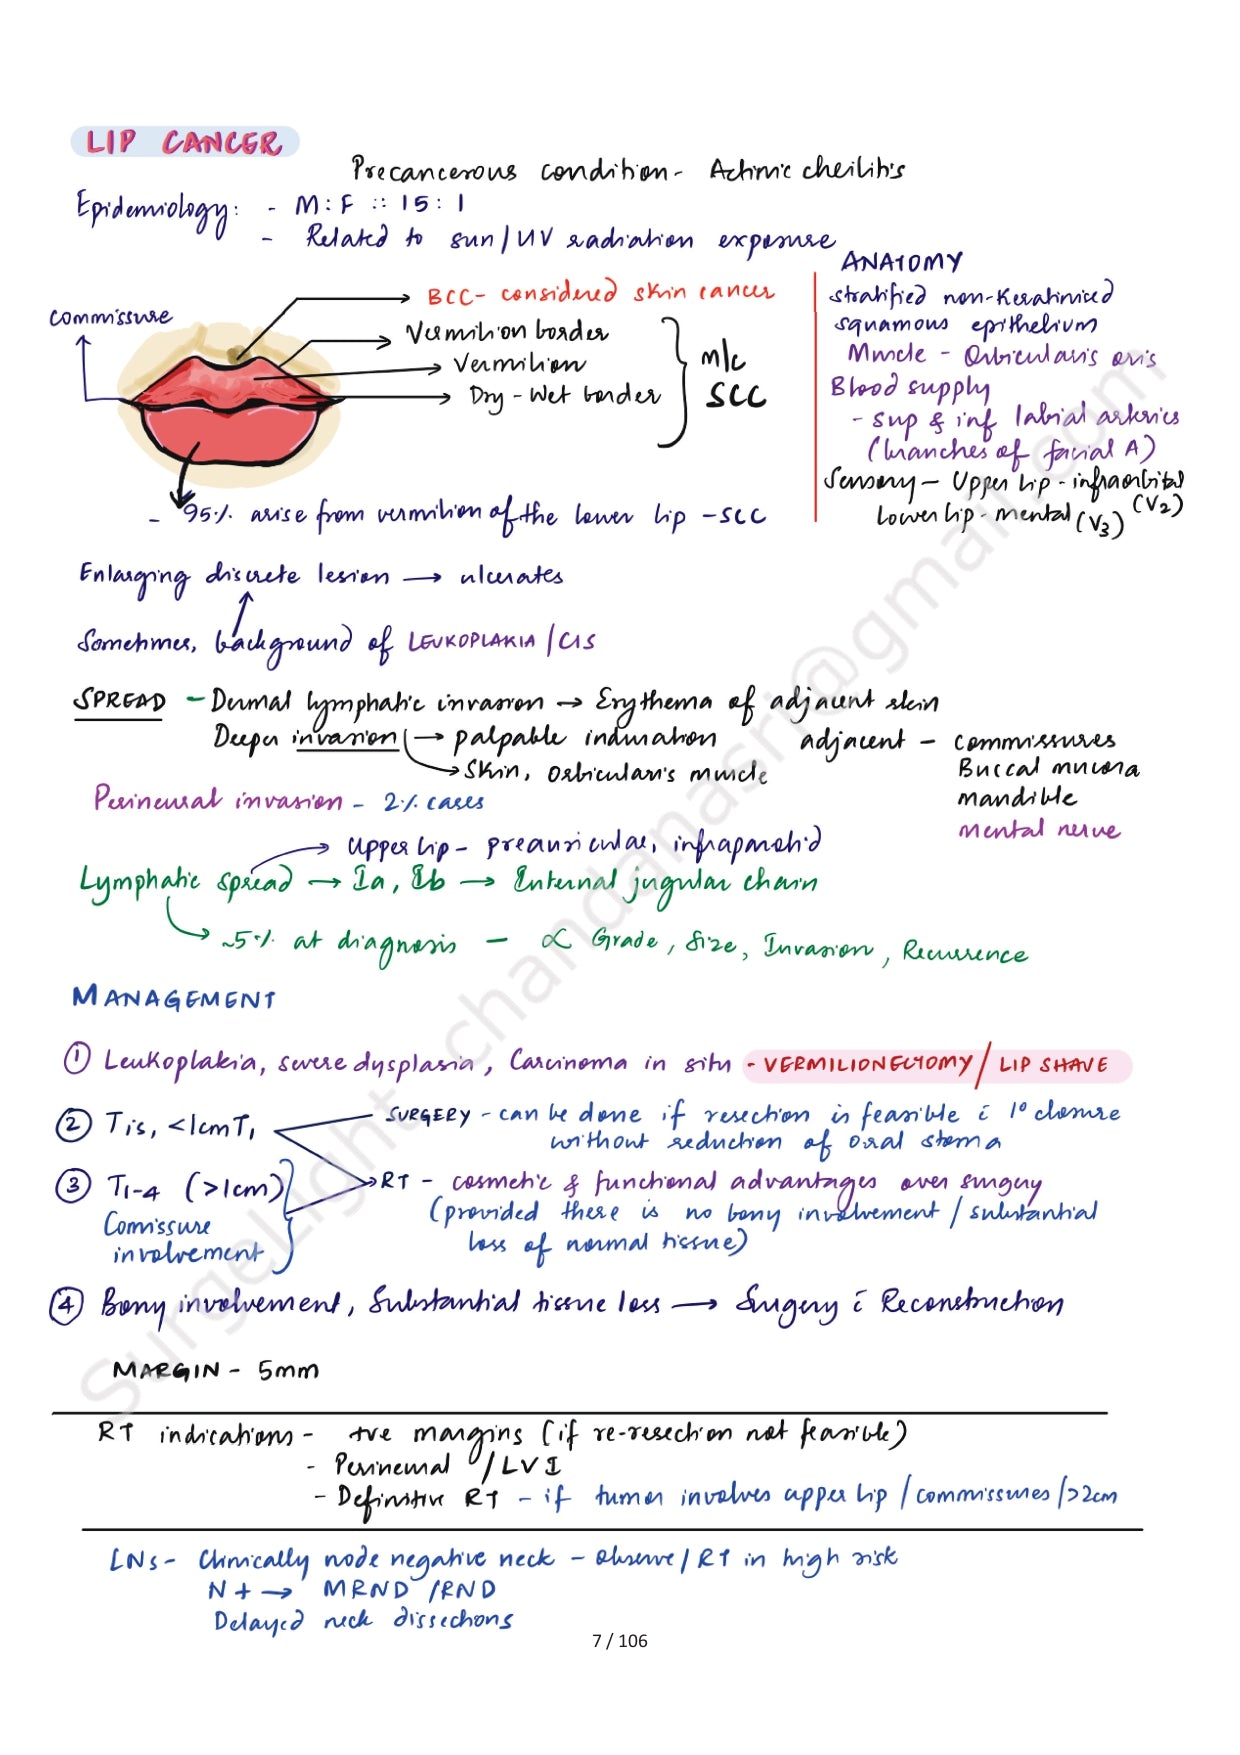 LIP CANCER
Precancerous condition - Actinic cheilitis
Epidemiology: - M:F :: 15:1
- Related to sun/UV radiation exposure
commissure
BCC- considered skin cancer
Vermilion border
Vermilion
Dry-Wet border
m/c
SCC
ANATOMY
Stratified non-Keratinized
squamous epithelium
Muscle - Orbicularis oris
Blood supply
- Sup & inf labial arteries
(branches of facial A)
Sensory - Upper lip - infraorbital
(V2)
Lower lip - mental (V3)
- 95% arise from vermilion of the lower lip - SCC
Enlarging discrete lesion → ulcerates
Sometimes, background of LEUKOPLAKIA/CIS
SPREAD - Dermal lymphatic invasion → Erythema of adjacent skin
Deeper invasion → palpable induration
→ Skin, Orbicularis muscle
adjacent - commissures
Buccal mucosa
mandible
mental nerve
Perineural invasion - 2% cases
→ Upper lip - preauricular, infraparotid
Lymphatic spread → Ia, Ib → Internal jugular chain
→ ~5% at diagnosis - ∝ Grade, Size, Invasion, Recurrence
MANAGEMENT
① Leukoplakia, severe dysplasia, Carcinoma in situ - VERMILIONECTOMY/LIP SHAVE
② Tis, <1cm T1
SURGERY - can be done if resection is feasible c̄ 1° closure
without reduction of oral stoma
③ T1-4 (>1cm)
Comissure
involvement
RT - cosmetic & functional advantages over surgery
(provided there is no bony involvement/substantial
loss of normal tissue)
④ Bony involvement, Substantial tissue loss → Surgery c̄ Reconstruction
MARGIN - 5mm
RT indications - +ve margins (if re-resection not feasible)
- Perineural /LVI
- Definitive RT - if tumor involves upper lip/commissures/>2cm
LNs - Clinically node negative neck - observe/RT in high risk
N+ → MRND/RND
Delayed neck dissections
7 / 106
SurgeLight chandanasri@gmail.com